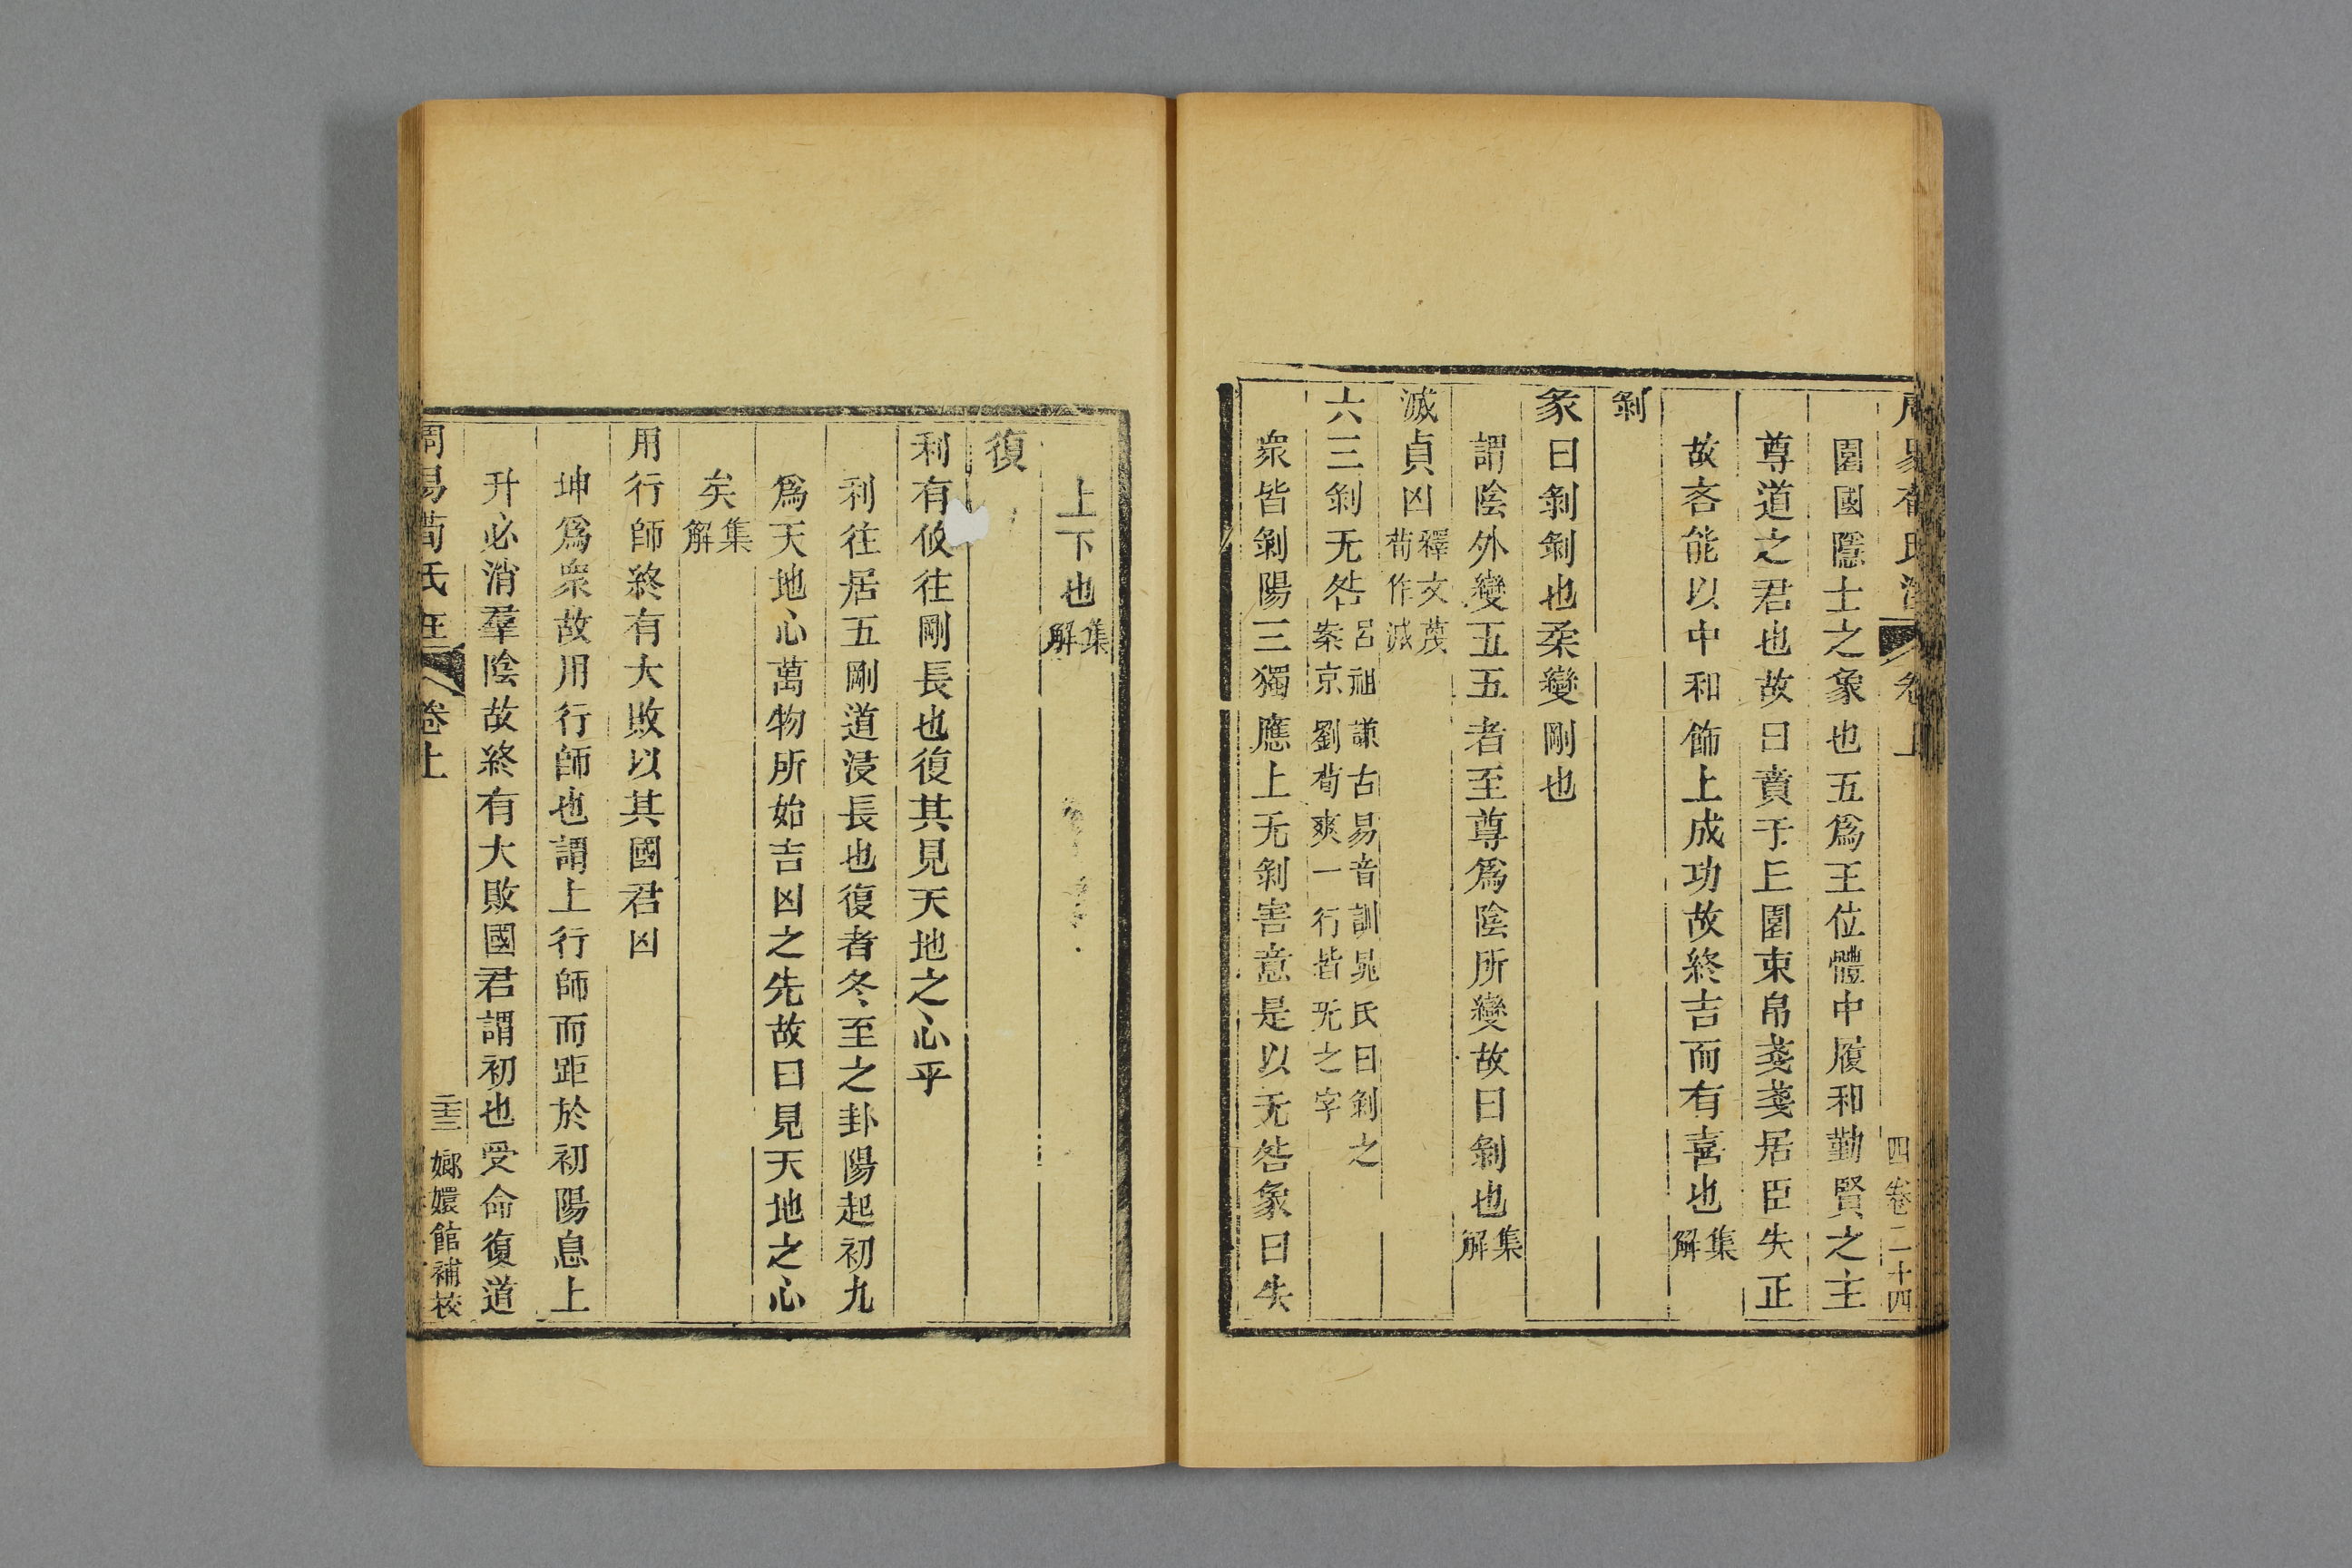 周易荀氏注 卷上 四 卷二十四
園國隱士之象也五爲王位體中履和勤賢之主
尊道之君也故曰賁于丘園束帛戔戔居臣失正
故吝能以中和飾上成功故終吉而有喜也集解
剝
彖曰剝剝也柔變剛也
謂陰外變五五者至尊爲陰所變故曰剝也集解
滅貞凶釋文蔑荀作滅
六三剝无咎呂祖謙古易音訓晁氏曰剝之案京劉荀爽一行皆无之字
衆皆剝陽三獨應上无剝害意是以无咎象曰失
上下也集解
復
利有攸往剛長也復其見天地之心乎
利往居五剛道浸長也復者冬至之卦陽起初九
爲天地心萬物所始吉凶之先故曰見天地之心
矣集解
用行師終有大敗以其國君凶
坤爲衆故用行師也謂上行師而距於初陽息上
升必消羣陰故終有大敗國君謂初也受命復道
周易荀氏注 卷上 嫏嬛館補校